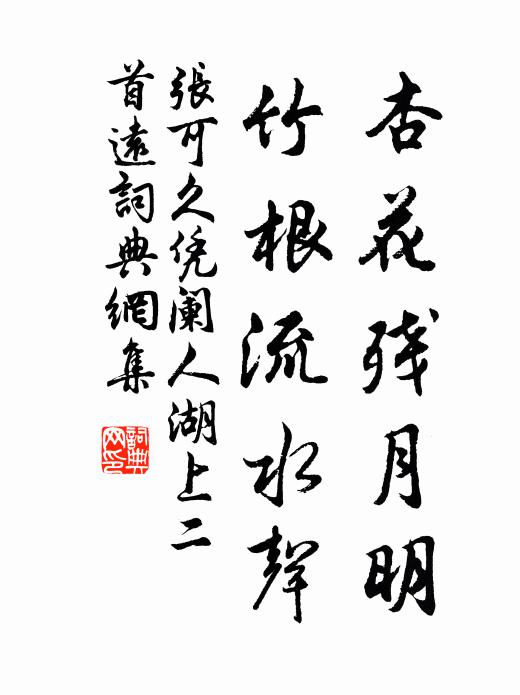 杏花残月明
竹根流水聲
張可久凭阑人湖上二
首遠詞典網集
詞典网印